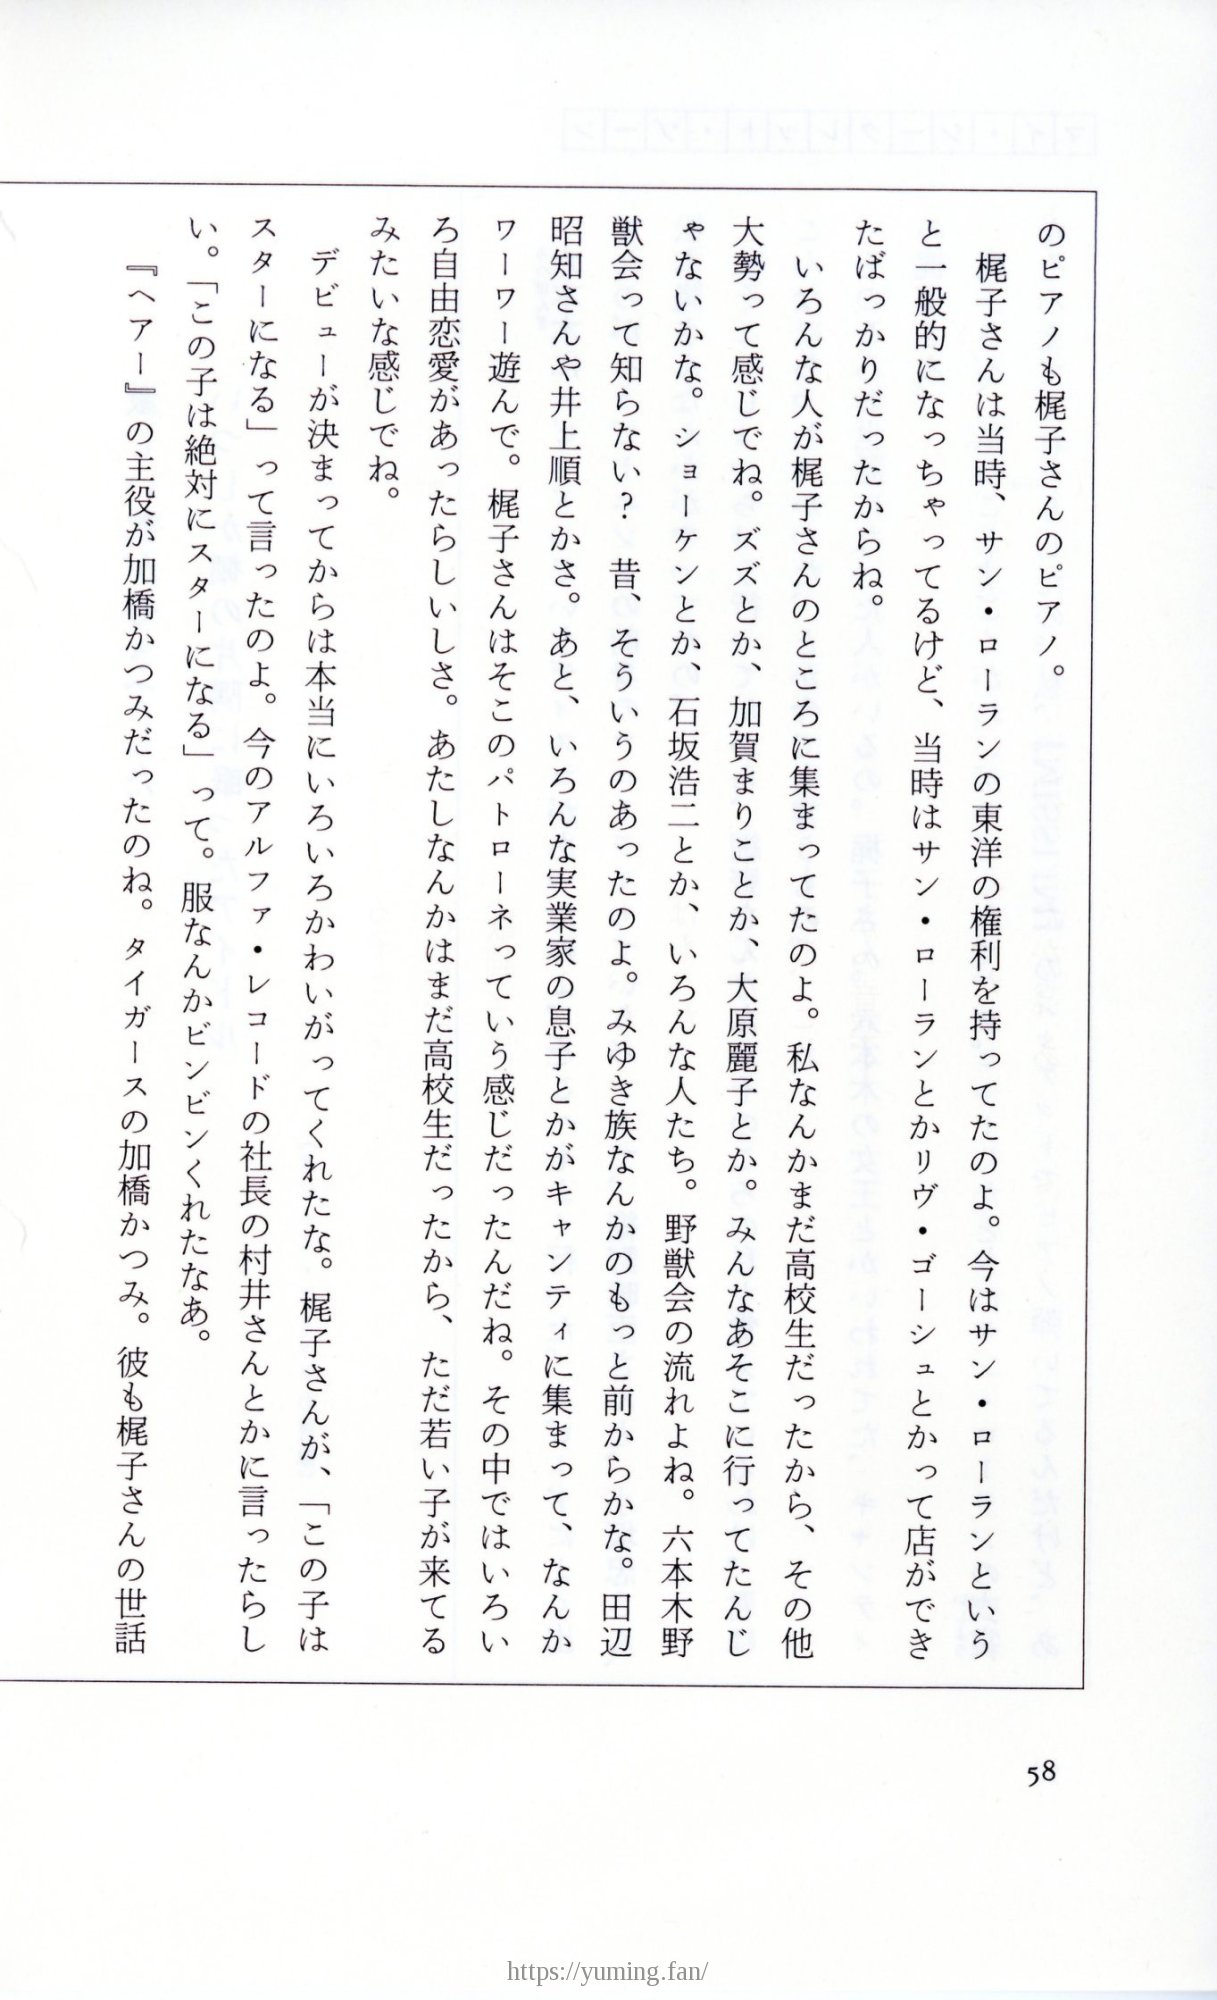 のピアノも梶子さんのピアノ。
梶子さんは当時、サン・ローランの東洋の権利を持ってたのよ。今はサン・ローランという
と一般的になっちゃってるけど、当時はサン・ローランとかリヴ・ゴーシュとかって店ができ
たばっかりだったからね。
いろんな人が梶子さんのところに集まってたのよ。私なんかまだ高校生だったから、その他
大勢って感じでね。ズズとか、加賀まりことか、大原麗子とか。みんなあそこに行ってたんじ
ゃないかな。ショーケンとか、石坂浩二とか、いろんな人たち。野獣会の流れよね。六本木野
獣会って知らない？　昔、そういうのあったのよ。みゆき族なんかのもっと前からかな。田辺
昭知さんや井上順とかさ。あと、いろんな実業家の息子とかがキャンティに集まって、なんか
ワーワー遊んで。梶子さんはそこのパトローネっていう感じだったんだね。その中ではいろい
ろ自由恋愛があったらしいしさ。あたしなんかはまだ高校生だったから、ただ若い子が来てる
みたいな感じでね。
デビューが決まってからは本当にいろいろかわいがってくれたな。梶子さんが、「この子は
スターになる」って言ったのよ。今のアルファ・レコードの社長の村井さんとかに言ったらし
い。「この子は絶対にスターになる」って。服なんかビンビンくれたなあ。
『ヘアー』の主役が加橋かつみだったのね。タイガースの加橋かつみ。彼も梶子さんの世話
58
https://yuming.fan/